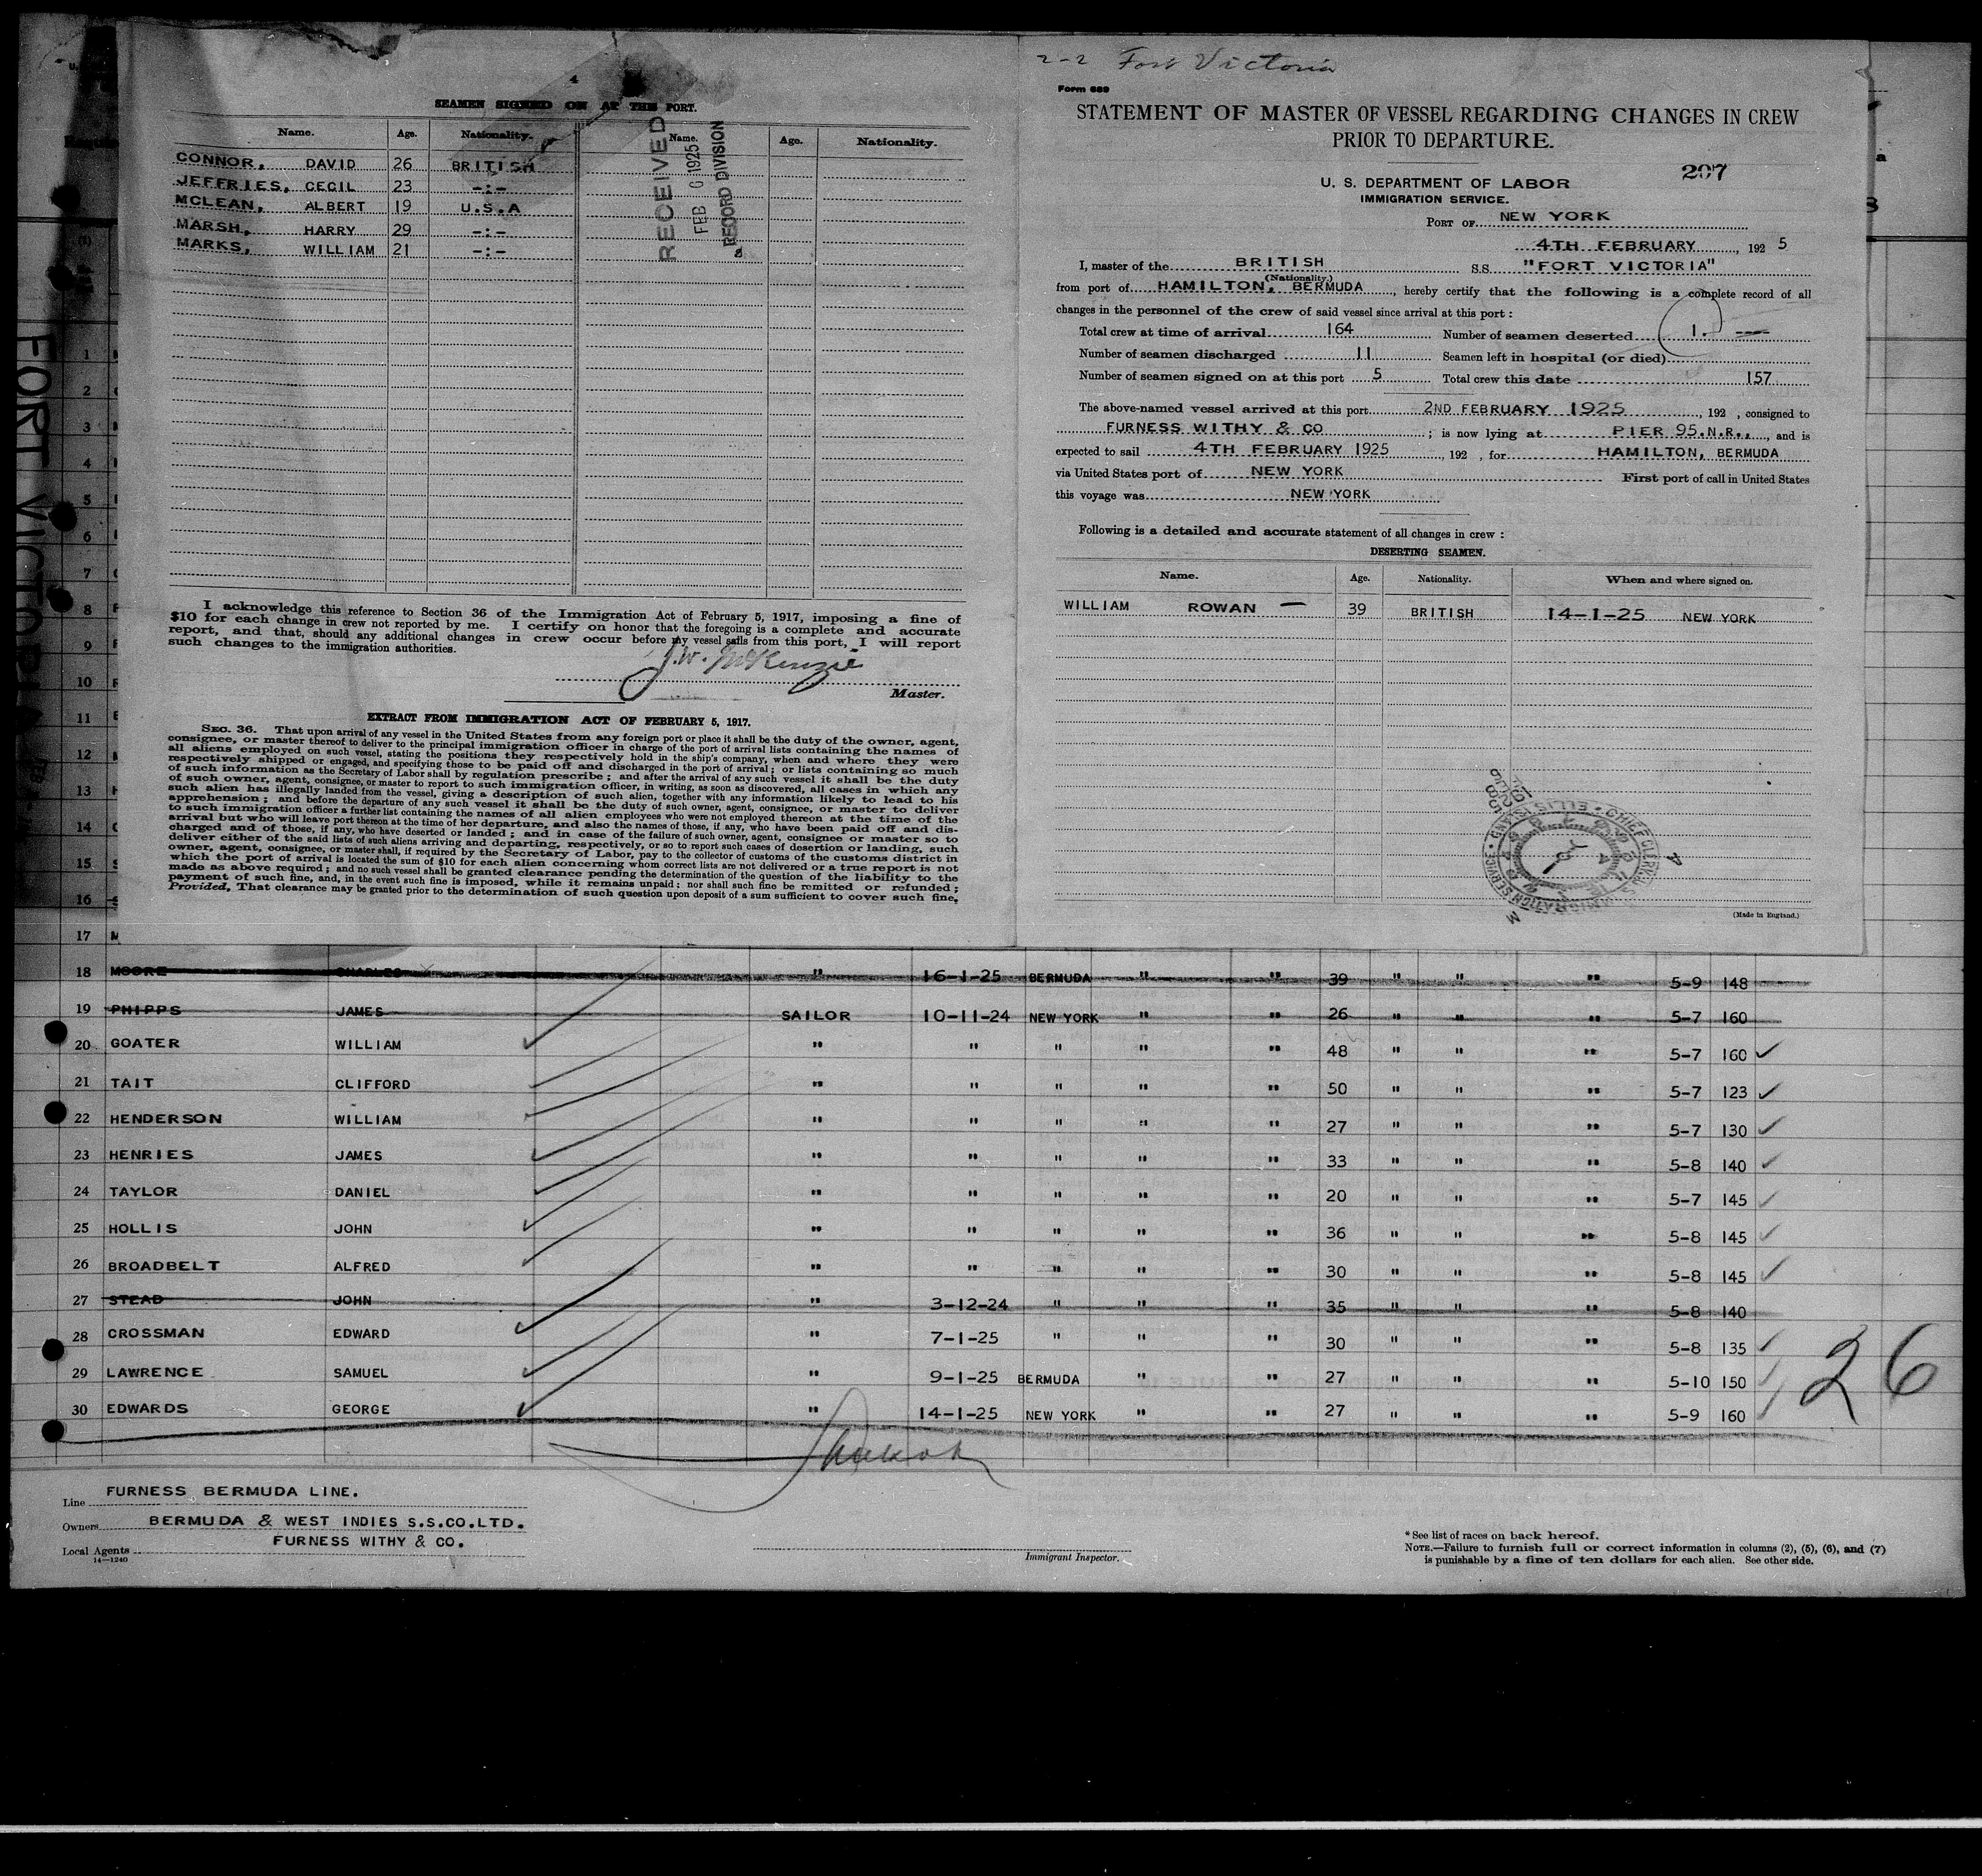 4
SEAMEN SIGNED ON AT THIS PORT.
Name. Age. Nationality. Name. Age. Nationality.
CONNOR, DAVID 26 BRITISH
JEFFRIES, CECIL 23 -:-
MCLEAN, ALBERT 19 U.S.A
MARSH, HARRY 29 -:-
MARKS, WILLIAM 21 -:-
RECEIVED
FEB 6 1925
RECORD DIVISION
I acknowledge this reference to Section 36 of the Immigration Act of February 5, 1917, imposing a fine of
$10 for each change in crew not reported by me. I certify on honor that the foregoing is a complete and accurate
report, and that, should any additional changes in crew occur before my vessel sails from this port, I will report
such changes to the immigration authorities.
J.W. McKenzie
Master.
EXTRACT FROM IMMIGRATION ACT OF FEBRUARY 5, 1917.
SEC. 36. That upon arrival of any vessel in the United States from any foreign port or place it shall be the duty of the owner, agent,
consignee, or master thereof to deliver to the principal immigration officer in charge of the port of arrival lists containing the names of
all aliens employed on such vessel, stating the positions they respectively hold in the ship's company, when and where they were
respectively shipped or engaged, and specifying those to be paid off and discharged in the port of arrival; or lists containing so much
of such information as the Secretary of Labor shall by regulation prescribe; and after the arrival of any such vessel it shall be the duty
of such owner, agent, consignee, or master to report to such immigration officer, in writing, as soon as discovered, all cases in which any
such alien has illegally landed from the vessel, giving a description of such alien, together with any information likely to lead to his
apprehension; and before the departure of any such vessel it shall be the duty of such owner, agent, consignee, or master to deliver
to such immigration officer a further list containing the names of all alien employees who were not employed thereon at the time of the
arrival but who will leave port thereon at the time of her departure, and also the names of those, if any, who have been paid off and dis-
charged and of those, if any, who have deserted or landed; and in case of the failure of such owner, agent, consignee or master so to
deliver either of the said lists of such aliens arriving and departing, respectively, or so to report such cases of desertion or landing, such
owner, agent, consignee, or master shall, if required by the Secretary of Labor, pay to the collector of customs of the customs district in
which the port of arrival is located the sum of $10 for each alien concerning whom correct lists are not delivered or a true report is not
made as above required; and no such vessel shall be granted clearance pending the determination of the question of the liability to the
payment of such fine, and, in the event such fine is imposed, while it remains unpaid; nor shall such fine be remitted or refunded;
Provided, That clearance may be granted prior to the determination of such question upon deposit of a sum sufficient to cover such fine.
2-2 Fort Victoria
Form 689
STATEMENT OF MASTER OF VESSEL REGARDING CHANGES IN CREW
PRIOR TO DEPARTURE.
207
U. S. DEPARTMENT OF LABOR
IMMIGRATION SERVICE.
PORT OF NEW YORK
4TH FEBRUARY, 192 5
I, master of the BRITISH S.S. "FORT VICTORIA"
(Nationality.)
from port of HAMILTON, BERMUDA, hereby certify that the following is a complete record of all
changes in the personnel of the crew of said vessel since arrival at this port:
Total crew at time of arrival 164 Number of seamen deserted 1.
Number of seamen discharged 11 Seamen left in hospital (or died)
Number of seamen signed on at this port 5 Total crew this date 157
The above-named vessel arrived at this port 2ND FEBRUARY 1925, 192 , consigned to
FURNESS WITHY & CO ; is now lying at PIER 95.N.R., and is
expected to sail 4TH FEBRUARY 1925, 192 , for HAMILTON, BERMUDA
via United States port of NEW YORK First port of call in United States
this voyage was NEW YORK
Following is a detailed and accurate statement of all changes in crew:
DESERTING SEAMEN.
Name. Age. Nationality. When and where signed on.
WILLIAM ROWAN — 39 BRITISH 14-1-25 NEW YORK
(Made in England.)
FORT VICTORIA
1
2
3
4
5
6
7
8
9
10
11
12
13
14
15
16
17
18 MOORE CHARLES " 16-1-25 BERMUDA " " 39 " " " 5-9 148
19 PHIPPS JAMES SAILOR 10-11-24 NEW YORK " " 26 " " " 5-7 160
20 GOATER WILLIAM " " " " " 48 " " " 5-7 160
21 TAIT CLIFFORD " " " " " 50 " " " 5-7 123
22 HENDERSON WILLIAM " " " " " 27 " " " 5-7 130
23 HENRIES JAMES " " " " " 33 " " " 5-8 140
24 TAYLOR DANIEL " " " " " 20 " " " 5-7 145
25 HOLLIS JOHN " " " " " 36 " " " 5-8 145
26 BROADBELT ALFRED " " " " " 30 " " " 5-8 145
27 STEAD JOHN " 3-12-24 " " " 35 " " " 5-8 140
28 CROSSMAN EDWARD " 7-1-25 " " " 30 " " " 5-8 135
29 LAWRENCE SAMUEL " 9-1-25 BERMUDA " " 27 " " " 5-10 150
30 EDWARDS GEORGE " 14-1-25 NEW YORK " " 27 " " " 5-9 160
26
Line FURNESS BERMUDA LINE.
Owners BERMUDA & WEST INDIES S.S.CO.LTD.
Local Agents FURNESS WITHY & CO.
14—1240
Immigrant Inspector.
*See list of races on back hereof.
NOTE.—Failure to furnish full or correct information in columns (2), (5), (6), and (7)
is punishable by a fine of ten dollars for each alien. See other side.